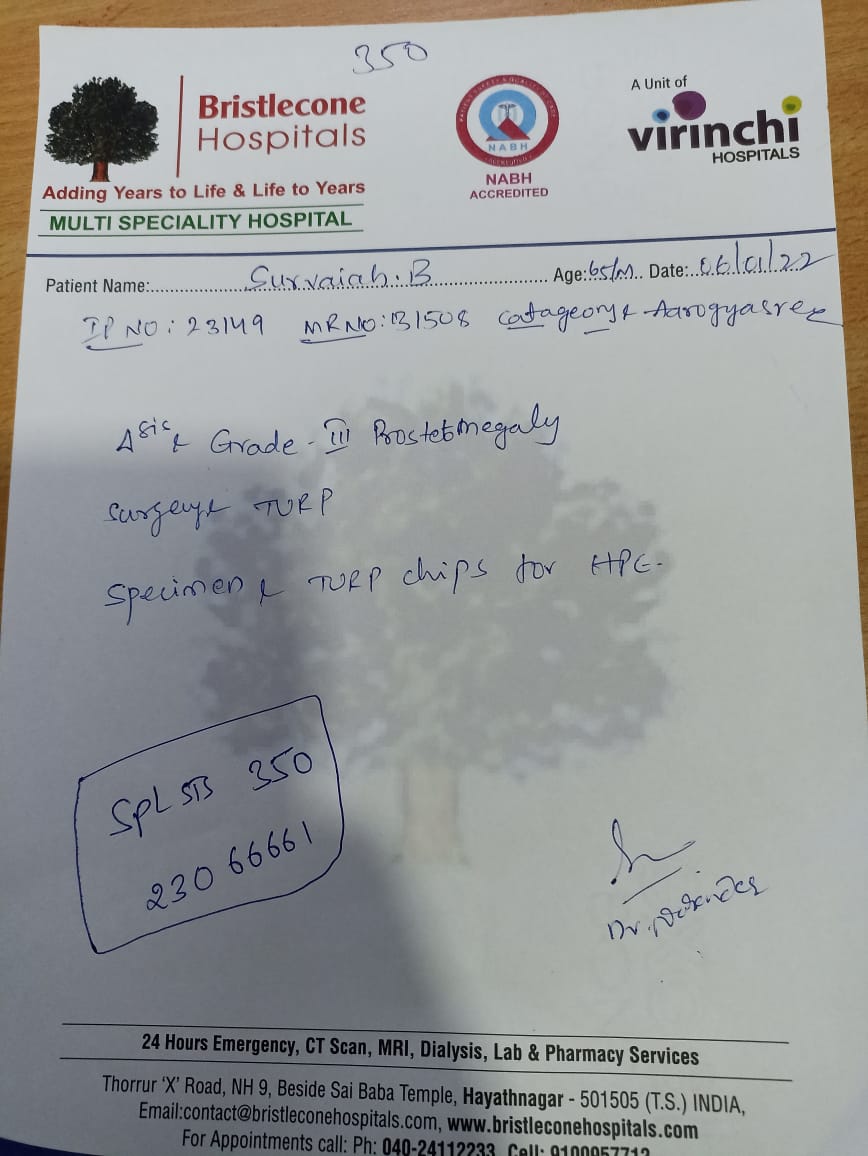 350
Bristlecone
Hospitals
Adding Years to Life & Life to Years
MULTI SPECIALITY HOSPITAL
NABH
NABH
ACCREDITED
A Unit of
virinchi
HOSPITALS
Patient Name: Survaiah.B Age: 65/M Date: 06/01/22
IP NO: 23149 MR NO: 131508 Catageory: Aarogyasree
Grade - III Prostetmegaly
Surgery: TURP
Specimen: TURP chips for HPE.
SPL STS 350
230 66661
Dr.
24 Hours Emergency, CT Scan, MRI, Dialysis, Lab & Pharmacy Services
Thorrur 'X' Road, NH 9, Beside Sai Baba Temple, Hayathnagar - 501505 (T.S.) INDIA,
Email:contact@bristleconehospitals.com, www.bristleconehospitals.com
For Appointments call: Ph: 040-24112233, Cell: 9100957712